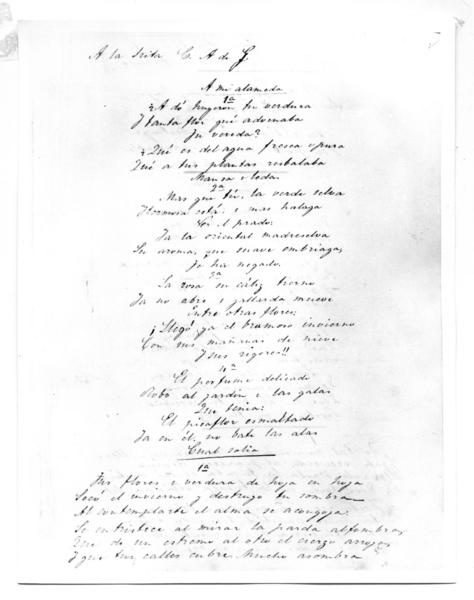 A la Srita C. A de G.
A mi alameda
1ª
¿A dó huyeron tu verdura
I tanta flor qué adornaba
Tu vereda?
¿Qué es del agua fresca i pura
Qué a tus plantas resbalaba
Mansa i leda.
2ª
Mas que tú, la verde selva
Hermosa está, i mas halaga
el prado:
Ya la oriental madreselva
Su aroma, que suave embriaga,
Te ha negado.
3ª
La rosa su cáliz tierno
Ya no abre i gallarda mueve
Entre otras flores;
¡Llegó ya el brumoso invierno
Con sus mañanas de nieve
I sus rigores!!
4ª
El perfume delicado
Robó al jardin i las galas
Que tenia:
El picaflor esmaltado
Ya en él, no bate las alas
Cual solia
1ª
Tus flores i verdura de hoja en hoja
Secó el invierno y destruyó tu sombra
Al contemplarte el alma se acongoja:
Se entristece al mirar la parda alfombra,
Que de un estremo al otro el cierzo arroja,
I que tus calles cubre. Mucho asombra